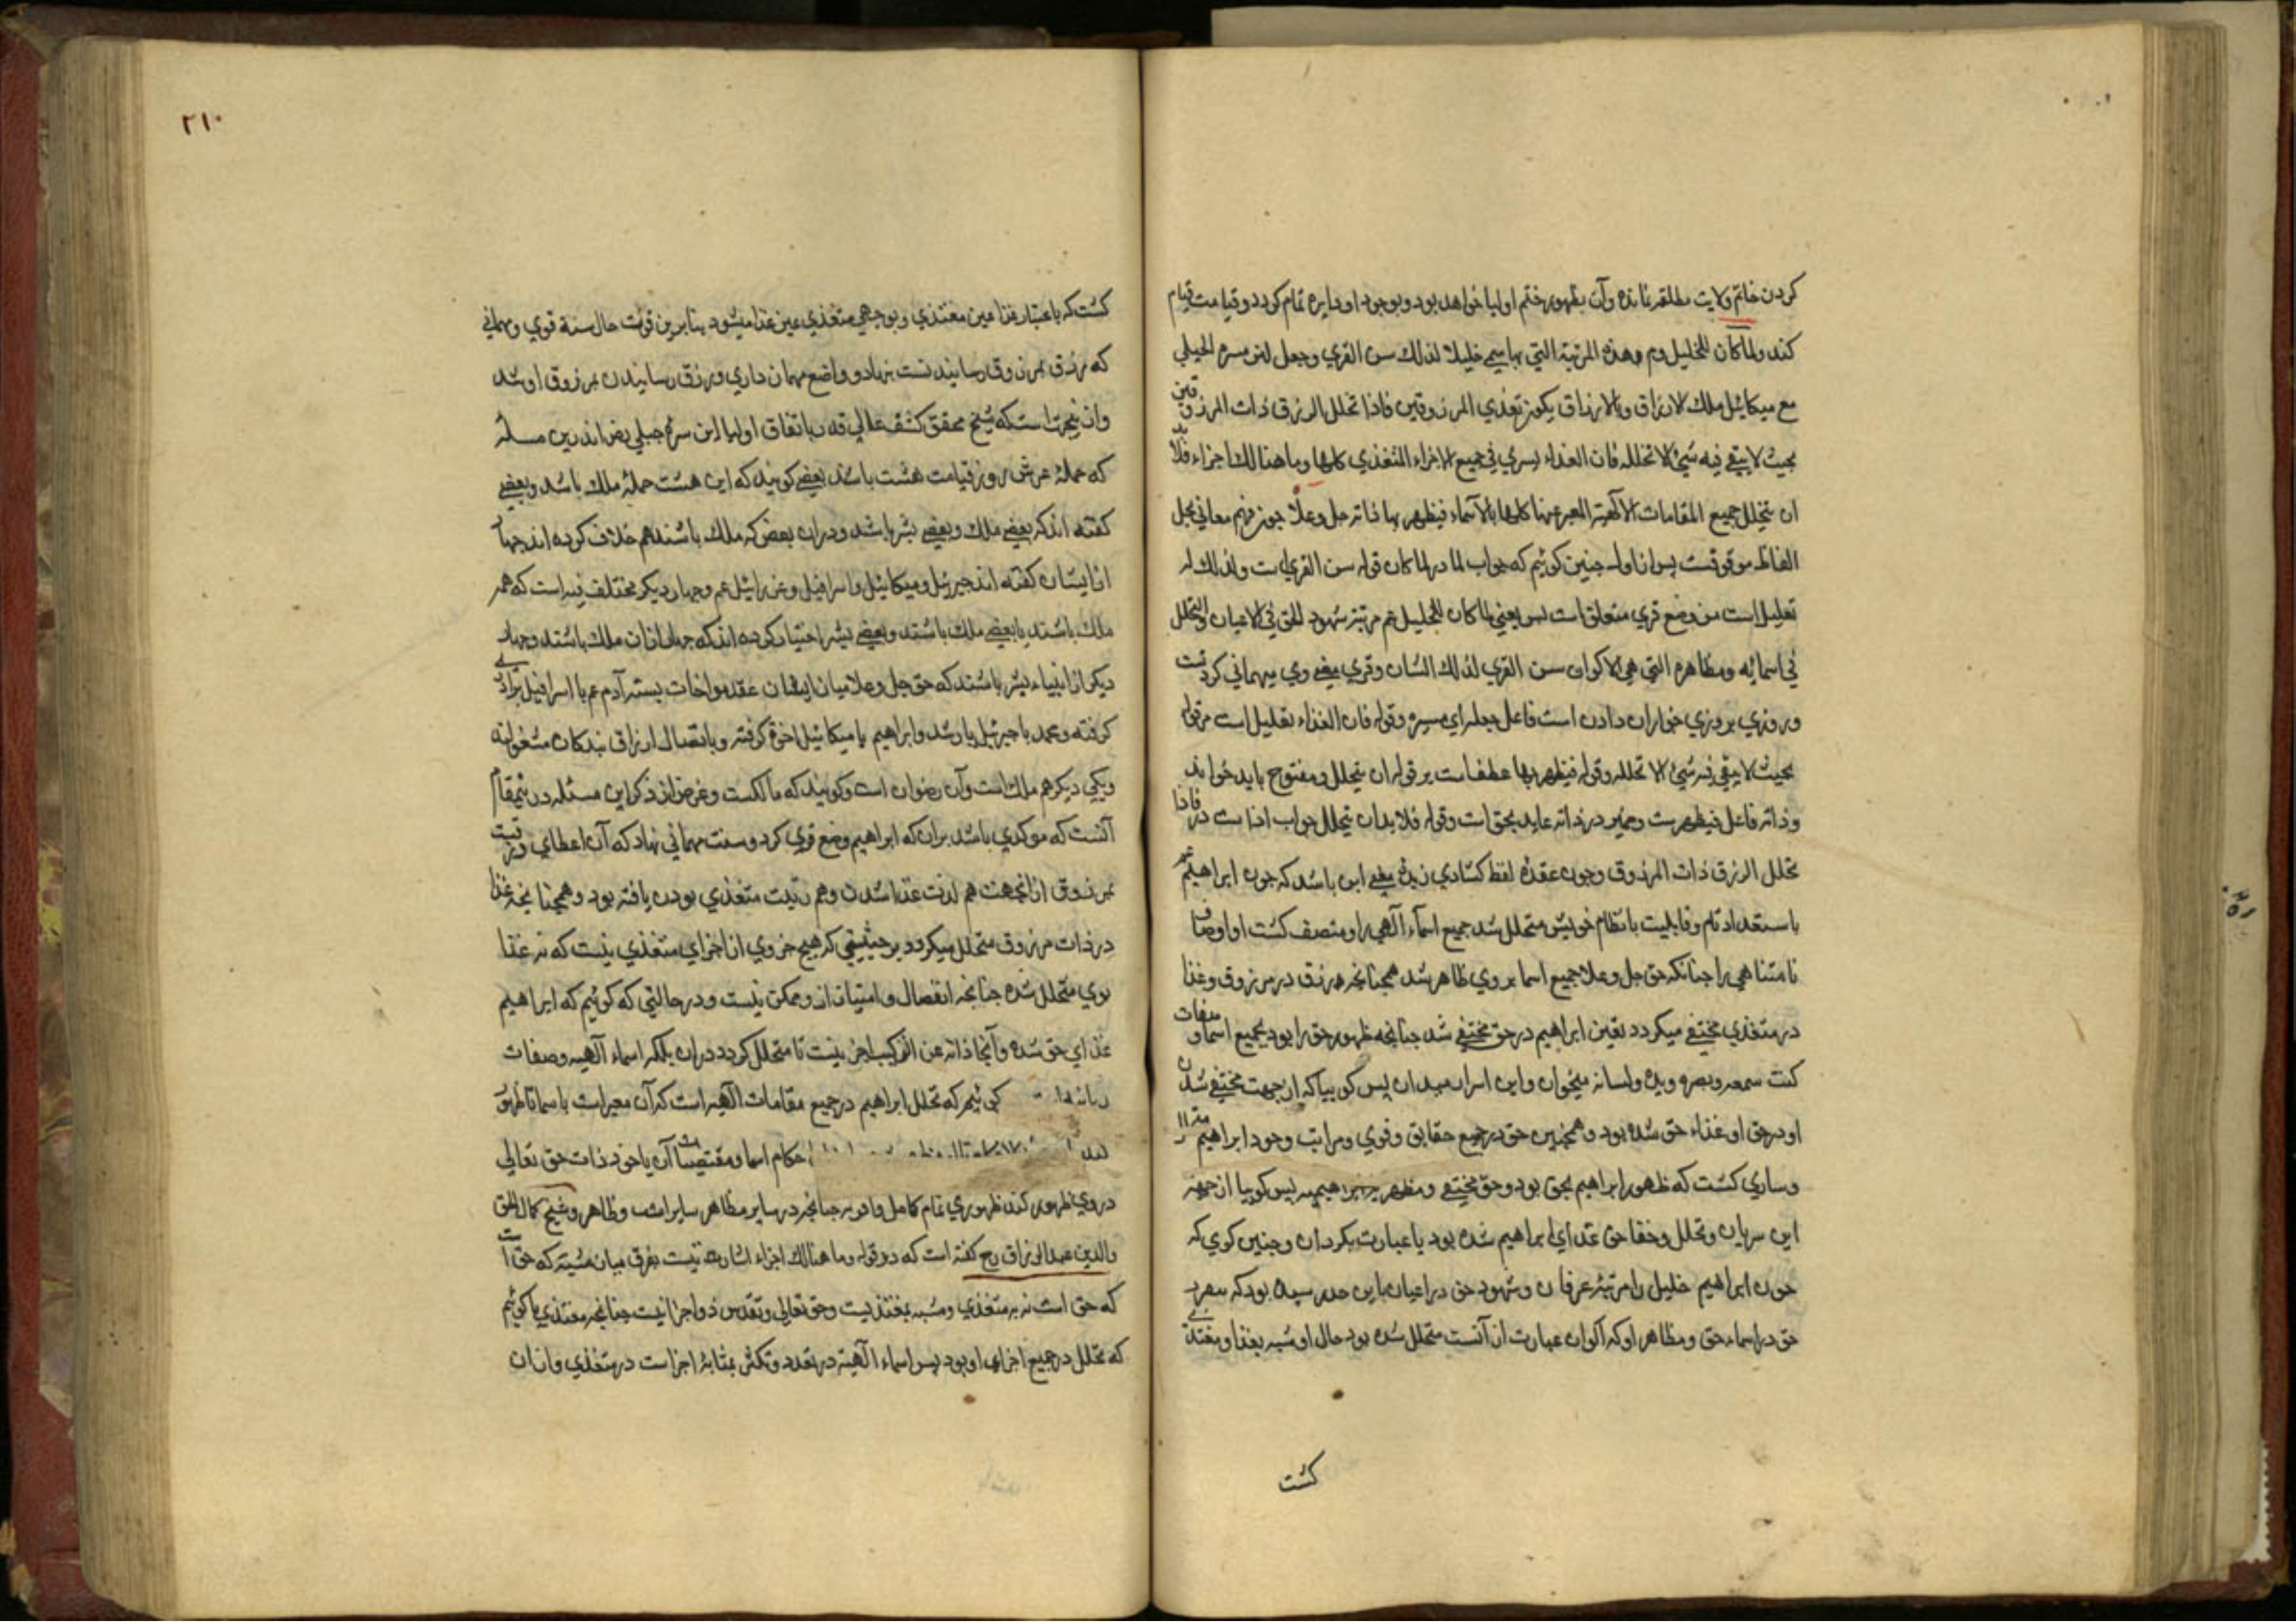 کردن خاتم ولایت مطلقه نمانده وآن بظهور ختم اولیا خواهد بود وبوجود او دایره تمام کردد وقیامت قیام
کند ولما کان للخلیل عم هذه المرتبة التي بها سمي خليلا لذلك سن القري وجعله ابن مسرة الجبلي
مع ميكائيل ملك الارزاق وبالارزاق يكون تغذي المرزوقين فاذا تخلل الرزق ذات المرزوقين
بحيث لا يبقي فيه شيئ الا تخلله فان الغذاء يسري في جميع الاجزاء المتغذي كلها وما هنالك اجزاء فلا بد
ان يتخلل جميع المقامات الالهية المعبر عنها كلها بالاسماء فيظهر بها ذاته جل وعلا چون فهم معاني بحل
الفاظ موقوفست پس از اول چنین کوئیم که جواب لما در لما کان قوله سن القري است ولذلك له
تعلیل است من وضع قري متعلق است پس یعنی لما کان للخلیل عم مرتبة شهود الحق في الاعیان والتخلل
في اسمائه ومظاهره التي هي الاکوان سن القري لذلك الشان وقري یعنی وي میهماني کردنست
وروزي بروزي خواران دادن است فاعل جعله ابن مسره وقوله فان الغذاء تعلیل است مر قوله
بحيث لا يبقي فيه شيئ الا تخلله وقوله فيظهر بها عطفست بر قوله ان يتخلل ومفتوح باید خواند
وذاته فاعل فیظهرست وضمیر در ذاته عاید بحق است وقوله فلا بد ان یتخلل جواب اذا است در فاذا
تخلل الرزق ذات المرزوق وچون عقده لفظ کشادي زبدۀ معني این باشد که چون ابراهیم عم
باستعداد تام وقابلیت بانظام خویش متخلل شد جمیع اسماء آلهي را ومتصف کشت او اوصاف
نامتناهي را چنانکه حق جل وعلا جمیع اسما بر وي ظاهر شد همچنانچه رزق در مرزوق وغذا
در متغذي مختفي میکردد تعین ابراهیم در حق مختفي شد چنانچه ظهور حق را بود بجمیع اسما وصفات
کنت سمعه وبصره ویده ولسانه میخوان واین اسرار میدان پس کوییا که از جهت مختفي شدن
او در حق او غذاء حق شده بود وهمچنین حق در جمیع حقایق وقوي ومراتب وجود ابراهیم
وساري کشت که ظهور ابراهیم بحق بود وحق مختفي ومظهر ابراهیم پس کوییا از جهة
این سریان وتخلل وخفا حق غذاي ابراهیم شده بود یا عبارت بکردان وچنین کوي که
چون ابراهیم خلیل را مرتبۀ عرفان وشهود حق در اعیان باین حد رسیده بود که بسر
حق در اسماء حق ومظاهر او که اکوان عبارت از آنست متخلل شده بود حال او شبه بغذا ومغتذي
کشت
۲۱۰
کشت که باعتبار غذا عین مغتذي وبوجهي متغذي عین غذا میشود بنابرین قوت حال سنة قوي ومهماني
که رزق بمرزوق رسانیدنست بنهاد وواضع مهمان داري ورزق رسانیدن بمرزوق او شد
وازینجهت است که شیخ محقق کشف عالي قدر باتفاق اولیا ابن سرة جبلي رض اندرین مسله
که حملۀ عرش روز قیامت هشت باشند بعضي کویند که این هشت حمله ملك باشد وبعضي
کفته اند که بعضي ملك وبعضي بشر باشد ودران بعض که ملك باشند هم خلاف کرده اند چهار
از ایشان کفته اند جبرئیل ومیکائیل واسرافیل وعزرائیل عم وچهار دیکر مختلف فیه است که همه
ملك باشند یا بعضي ملك باشند وبعضي بشر اختیار کرده اند که چهار ازان ملك باشند وچهار
دیکر از انبیاء بشر باشند که حق جل وعلا میان ایشان عقد مواخات بسته آدم عم با اسرافیل برادري
کرفته ومحمد با جبرئیل یار شد وابراهیم با میکائیل اخوة کرفته وبایصال ارزاق بندکان مشغولند
ویکي دیکر هم ملك است وآن رضوان است وکویند که مالکست وغرض از ذکر این مسئله درینمقام
آنست که موکدي باشد بران که ابراهیم وضع قري کرد وسنت مهماني نهاد که آن اعطاي رزقست
بمرزوق ازانجهت هم لذت غذا شدن وهم رتبت متغذي بودن یافته بود وهمچنانچه غذا
در ذات مرزوق متخلل میکردد بر حیثیتي که هیچ جزوي از اجزاي متغذي نیست که نه غذا
بوي متخلل شده چنانچه انفصال وامتیاز ازو ممکن نیست ودر حالتي که کوئیم که ابراهیم
غذاي حق شده وآنجا ذاته عن الترکیب اجزا نیست تا متخلل کردد دران بلکه اسماء آلهیه وصفات
کوئیم که تخلل ابراهیم در جمیع مقامات آلهیه است که آن معبراست باسما تا ظهور
احکام اسما ومقتضیات آن یا خود ذات حق تعالي
در وي ظهور کند ظهوري تمام کامل وافر نه چنانچه در سایر مظاهر سایر است وظاهر وشیخ کمال الحق
والدین عبد الرزاق رح کفته است که در قوله وما هنالك اجزاء اشارت نیست بفرق میان مشبه که حق است
که حق است نه به متغذي ومشبه بمغتذیست وحق تعالي وتقدس ذو اجزا نیست چنانچه مغتذي تا کوئیم
که تخلل در جمیع اجزاي او بود پس اسماء آلهیة در تعدد وتکثر بمثابۀ اجزاست در متغذي وازان